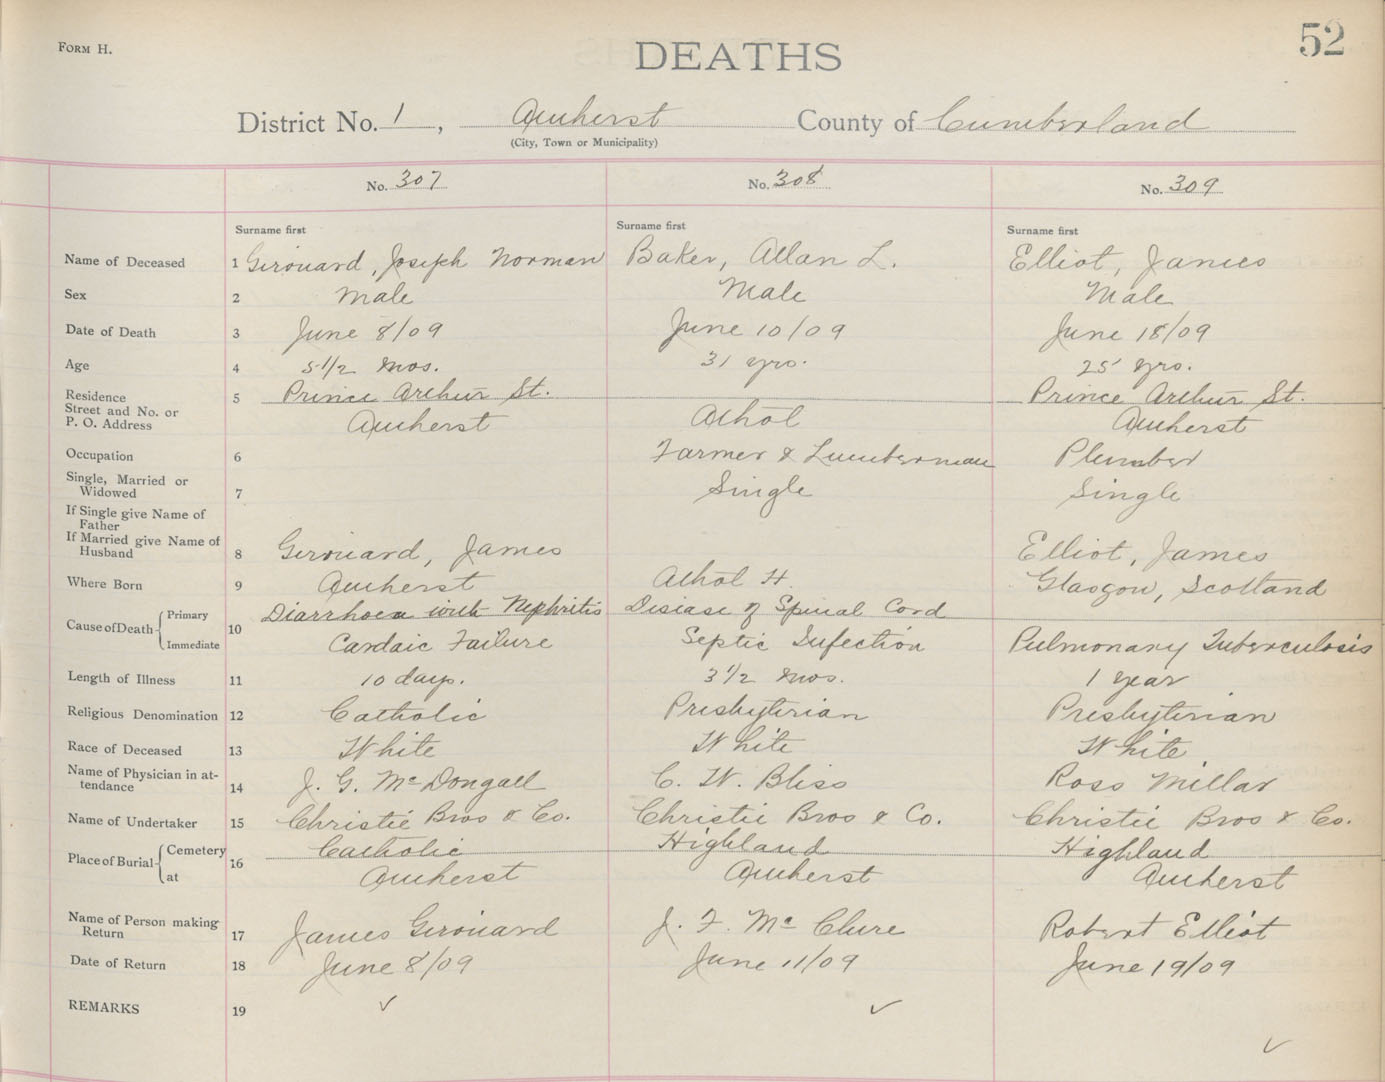 FORM H.
DEATHS
52
District No. 1, Amherst County of Cumberland
(City, Town or Municipality)
No. 307 No. 308 No. 309
Surname first Surname first Surname first
Name of Deceased 1 Girouard, Joseph Norman Baker, Allan L. Elliot, James
Sex 2 Male Male Male
Date of Death 3 June 8/09 June 10/09 June 18/09
Age 4 5 1/2 mos. 31 yrs. 25 yrs.
Residence 5 Prince Arthur St. Prince Arthur St.
Street and No. or
P. O. Address Amherst Athol Amherst
Occupation 6 Farmer & Lumberman Plumber
Single, Married or
Widowed 7 Single Single
If Single give Name of
Father
If Married give Name of
Husband 8 Girouard, James Elliot, James
Where Born 9 Amherst Athol H. Glasgow, Scotland
Cause of Death Primary 10 Diarrhoea with Nephritis Disease of Spinal Cord
Immediate Cardaic Failure Septic Infection Pulmonary Tuberculosis
Length of Illness 11 10 days. 3 1/2 mos. 1 year
Religious Denomination 12 Catholic Presbyterian Presbyterian
Race of Deceased 13 White White White
Name of Physician in at-
tendance 14 J. G. McDougall C. W. Bliss Ross Millar
Name of Undertaker 15 Christie Bros & Co. Christie Bros & Co. Christie Bros & Co.
Place of Burial Cemetery 16 Catholic Highland Highland
at Amherst Amherst Amherst
Name of Person making
Return 17 James Girouard J. F. McClure Robert Elliot
Date of Return 18 June 8/09 June 11/09 June 19/09
REMARKS 19 ✓ ✓ ✓